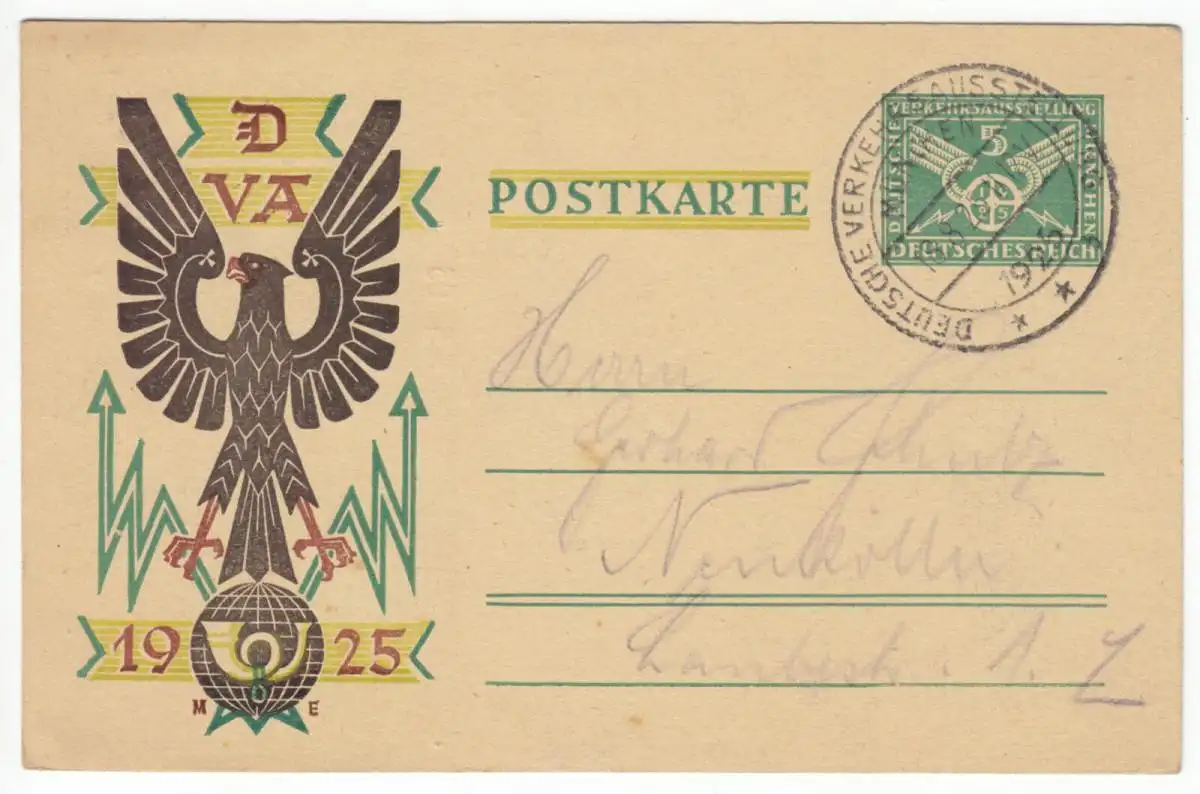 D
VA
POSTKARTE
VERKEHRSAUSSTELLUNG
DEUTSCHE
MÜNCHEN
DEUTSCHES REICH
DEUTSCHE VERKEHRSAUSSTELLUNG
MÜNCHEN
1925
Herrn
Gerhard Schulz
Neukölln
1925
M E